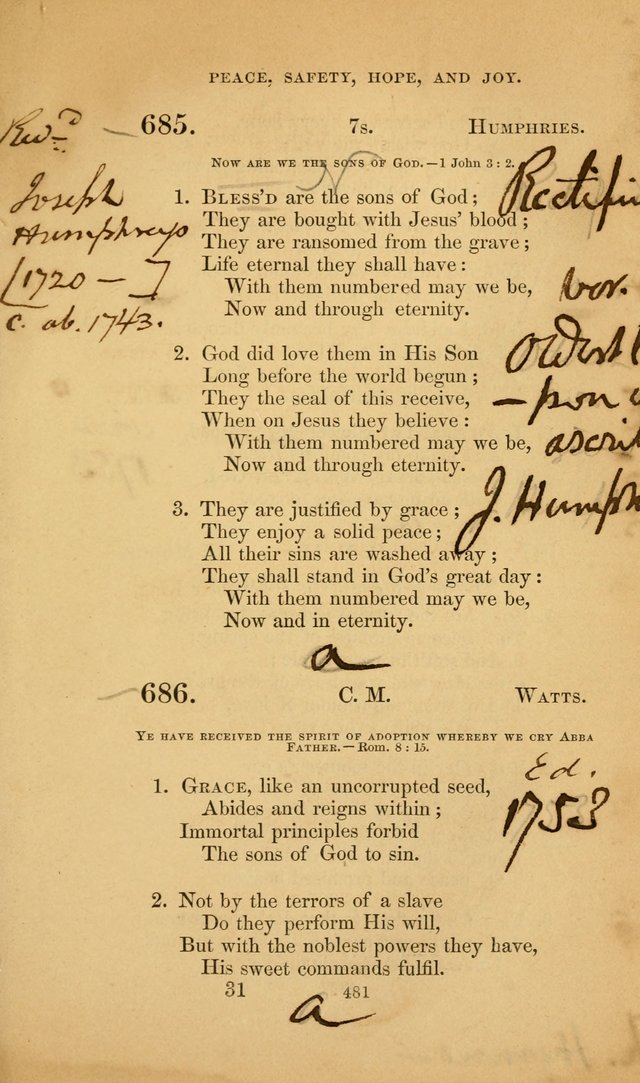 PEACE, SAFETY, HOPE, AND JOY.
Revd.
685. 7s. HUMPHRIES.
NOW ARE WE THE SONS OF GOD.—1 John 3 : 2.
Joseph
Humphreys
[1720 — ]
c. ab. 1743.
1. BLESS'D are the sons of God ;
They are bought with Jesus' blood ;
They are ransomed from the grave ;
Life eternal they shall have :
With them numbered may we be,
Now and through eternity.
2. God did love them in His Son
Long before the world begun ;
They the seal of this receive,
When on Jesus they believe :
With them numbered may we be,
Now and through eternity.
3. They are justified by grace ;
They enjoy a solid peace ;
All their sins are washed away ;
They shall stand in God's great day :
With them numbered may we be,
Now and in eternity.
J. Humph
a
686. C. M. WATTS.
YE HAVE RECEIVED THE SPIRIT OF ADOPTION WHEREBY WE CRY ABBA
FATHER.—Rom. 8 : 15.
Ed.
1753
1. GRACE, like an uncorrupted seed,
Abides and reigns within ;
Immortal principles forbid
The sons of God to sin.
2. Not by the terrors of a slave
Do they perform His will,
But with the noblest powers they have,
His sweet commands fulfil.
31 481
a